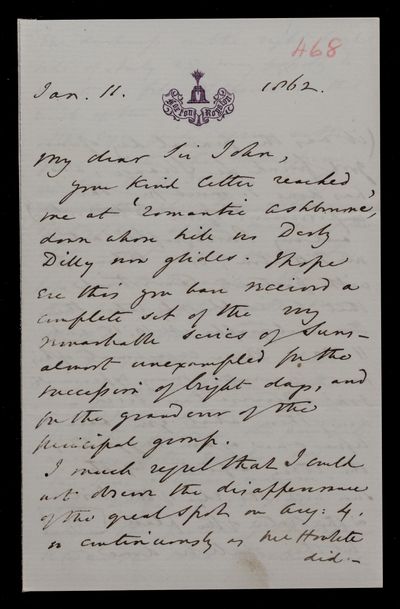 468
Jan. 11. 1862.
Horton Royston
My dear Sir John,
your kind letter reached
me at 'romantic Ashbourne,'
down whose hill no Derby
Dilly now glides. I hope
ere this you have received a
complete set of the very
remarkable series of Suns –
almost unexampled for the
succession of bright days, and
for the grandeur of the
principal group.
I much regret that I could
not observe the disappearance
of the great Spot on Aug: 4.
so continuously as Mr Howlett
did. –